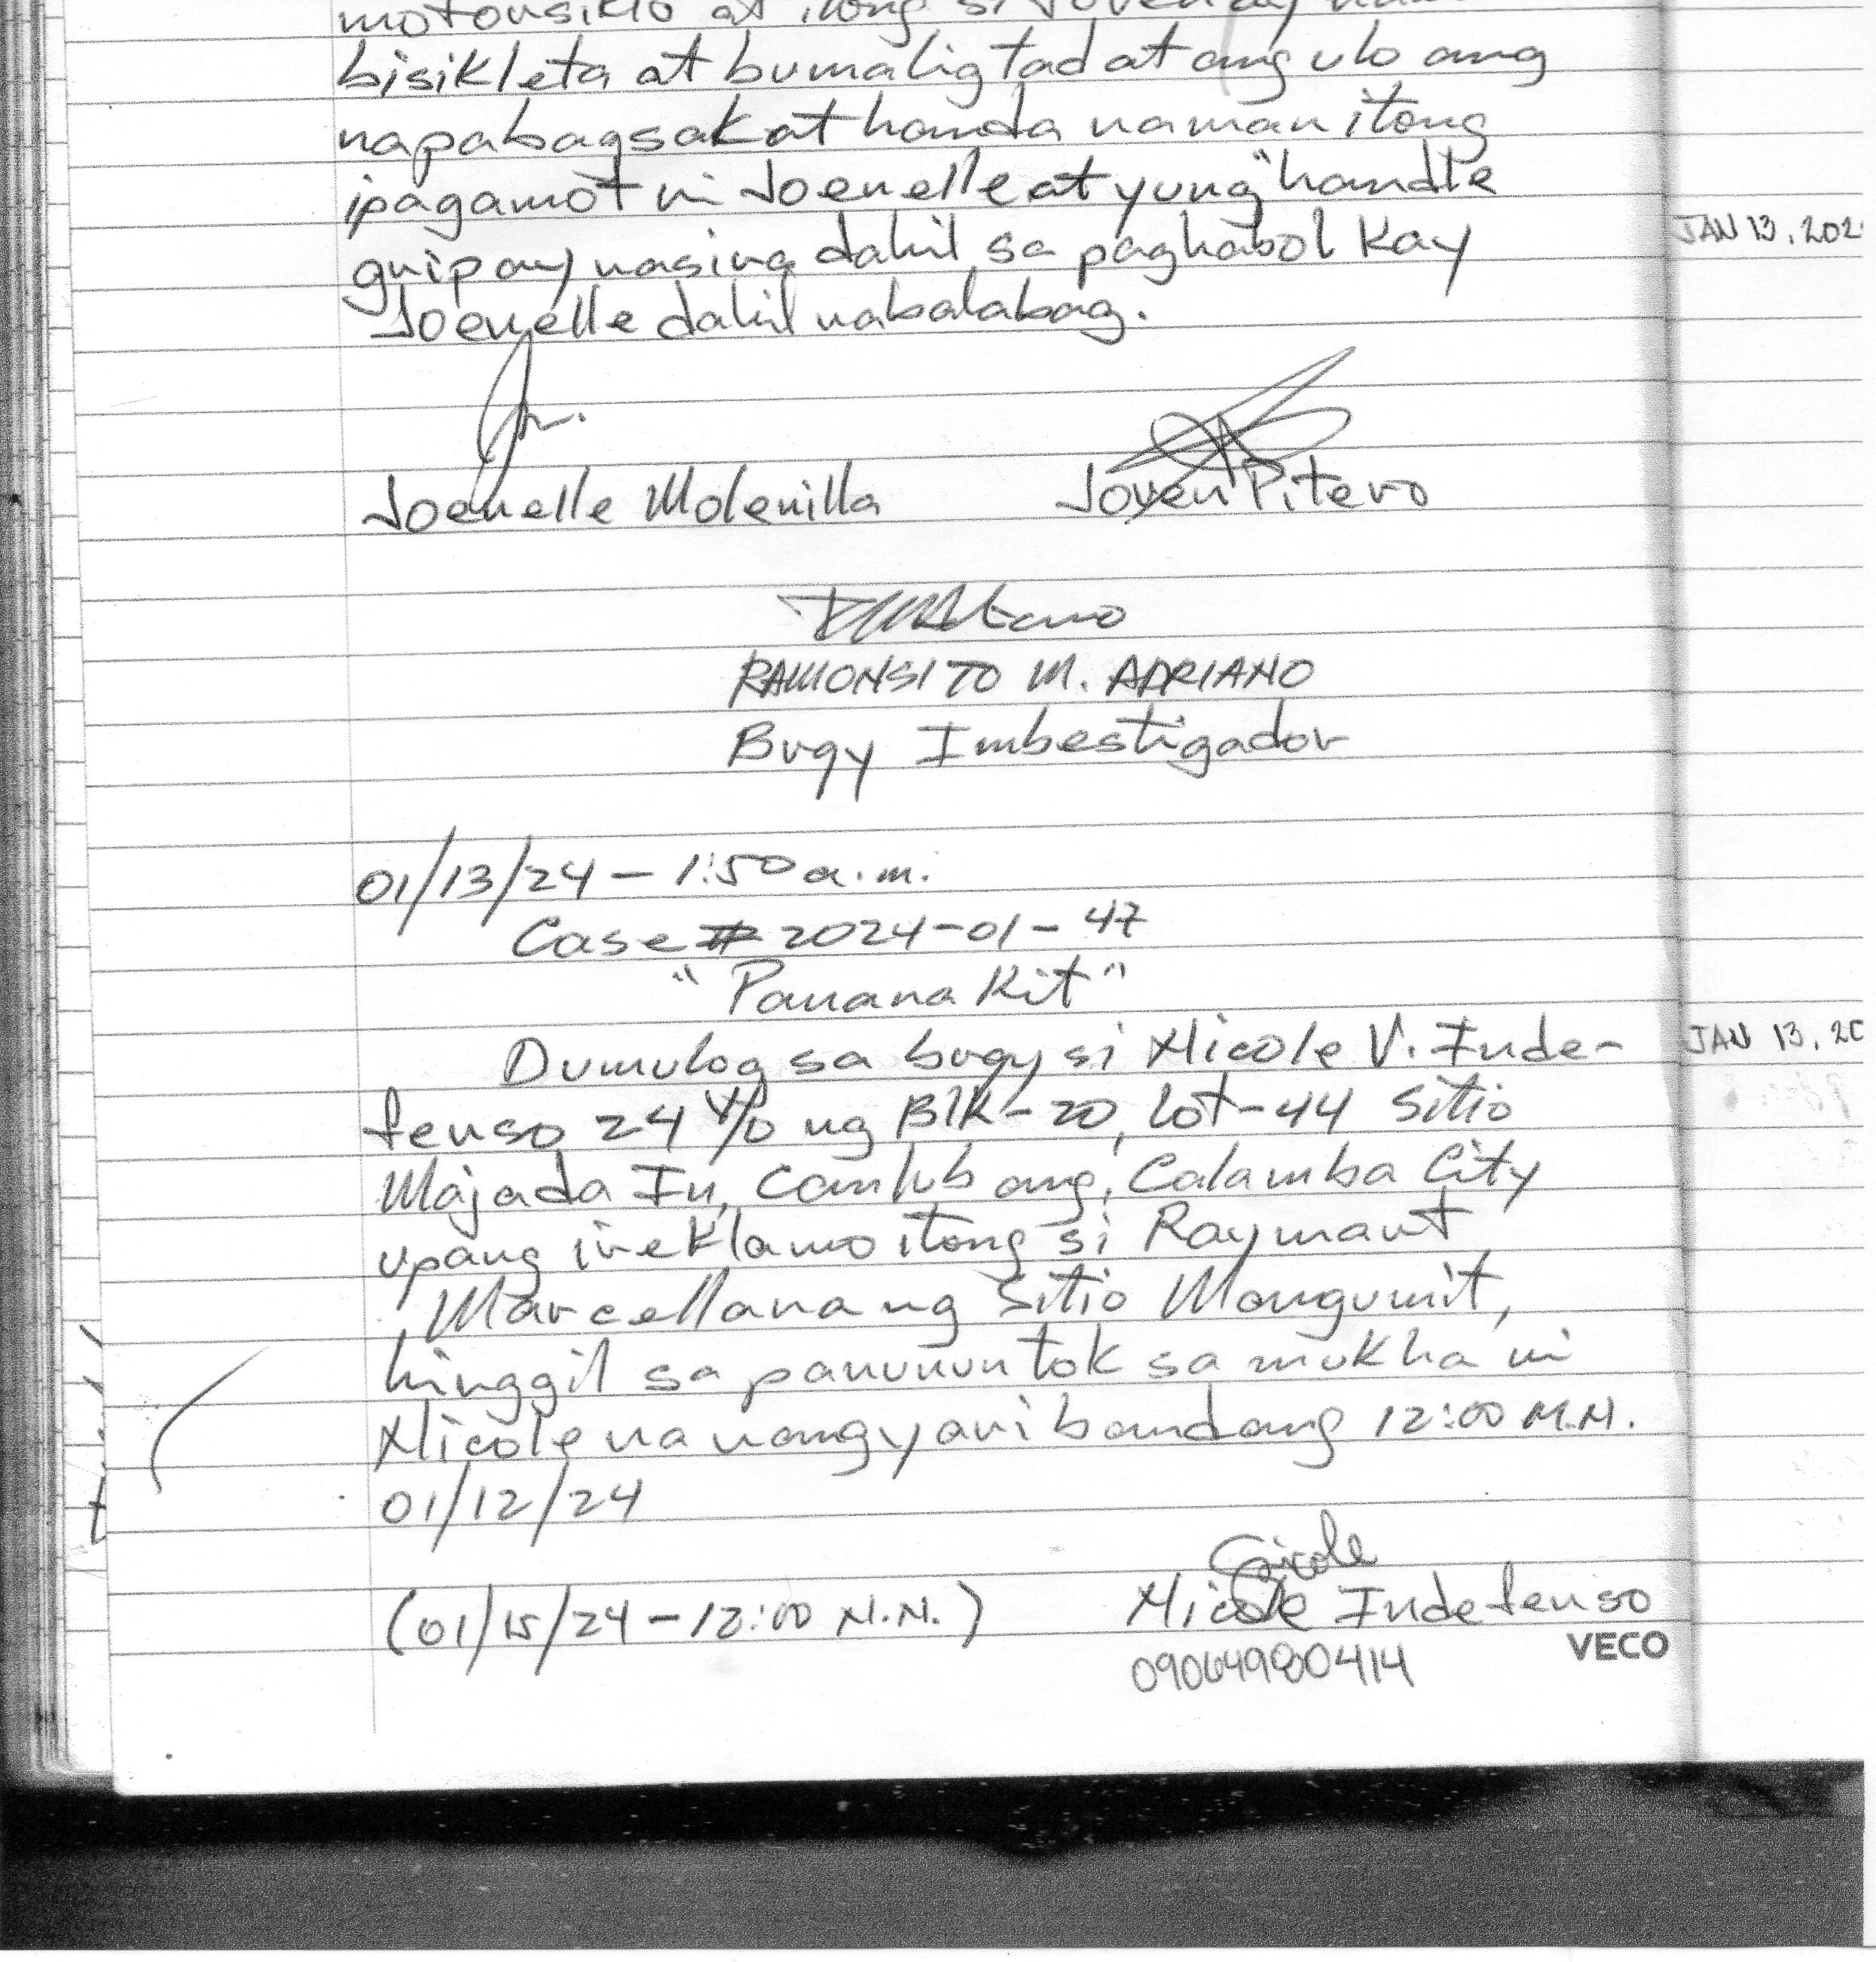 motorsiklo at itong si Joven ay
bisikleta at bumaligtad at ang ulo ang
napabagsak at handa naman itong
ipagamot ni Joenelle at yung "handle
grip ay nasira dahil sa paghabol kay
Joenelle dahil nabalabag.
Joenelle Molenilla Joven Pitero
RAMONSITO M. ADRIANO
Brgy Imbestigador
01/13/24 – 1:50 a.m.
Case # 2024-01-47
"Pananakit"
Dumulog sa brgy si Nicole V. Inde-
fenso 24 y/o ng Blk-20, Lot-44 Sitio
Majada In, Canlubang, Calamba City
upang ireklamo itong si Raymart
Marcellana ng Sitio Mangumit,
hinggil sa panununtok sa mukha ni
Nicole na nangyari bandang 12:00 M.N.
01/12/24
(01/15/24 – 12:00 N.N.) Nicole Indefenso
09064980414
VECO
JAN 13, 202
JAN 13, 20